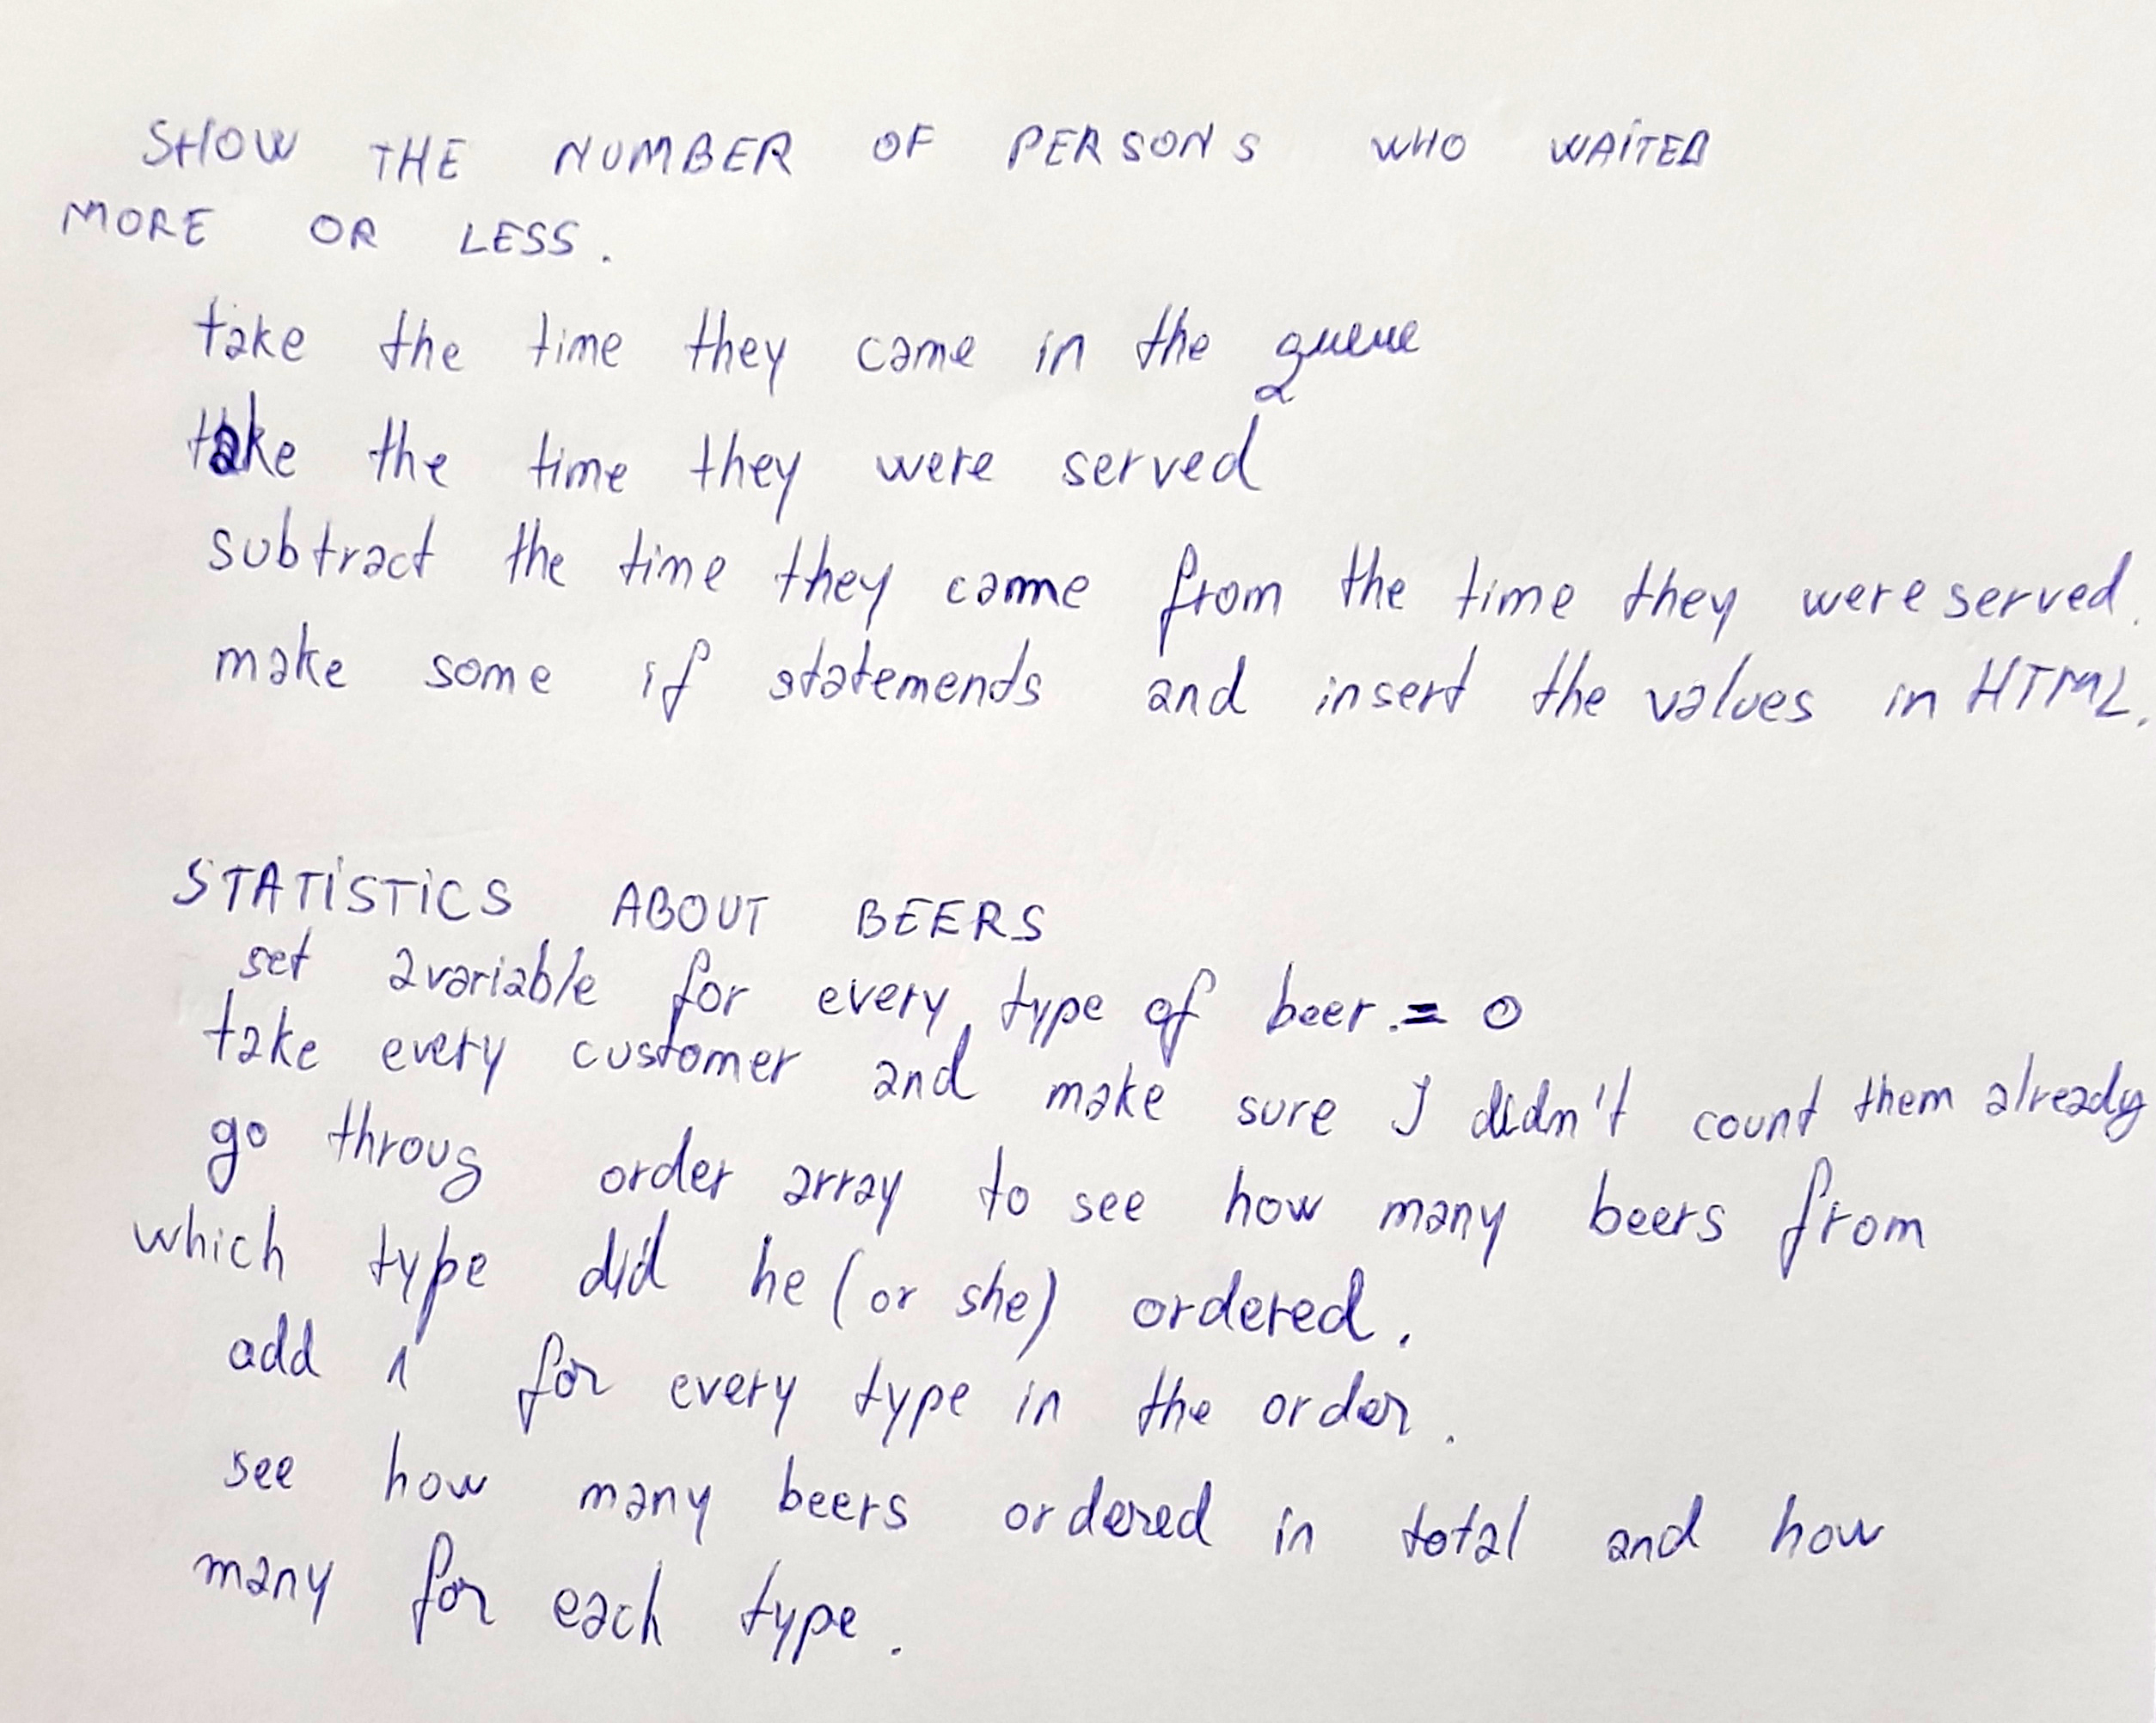 SHOW THE NUMBER OF PERSONS WHO WAITED
MORE OR LESS.
take the time they came in the queue
take the time they were served
subtract the time they came from the time they were served.
make some if statemends and insert the values in HTML.
STATISTICS ABOUT BEERS
set a variable for every type of beer. = 0
take every customer and make sure I didn't count them already
go throug order array to see how many beers from
which type did he (or she) ordered.
add 1 for every type in the order.
see how many beers ordered in total and how
many for each type.